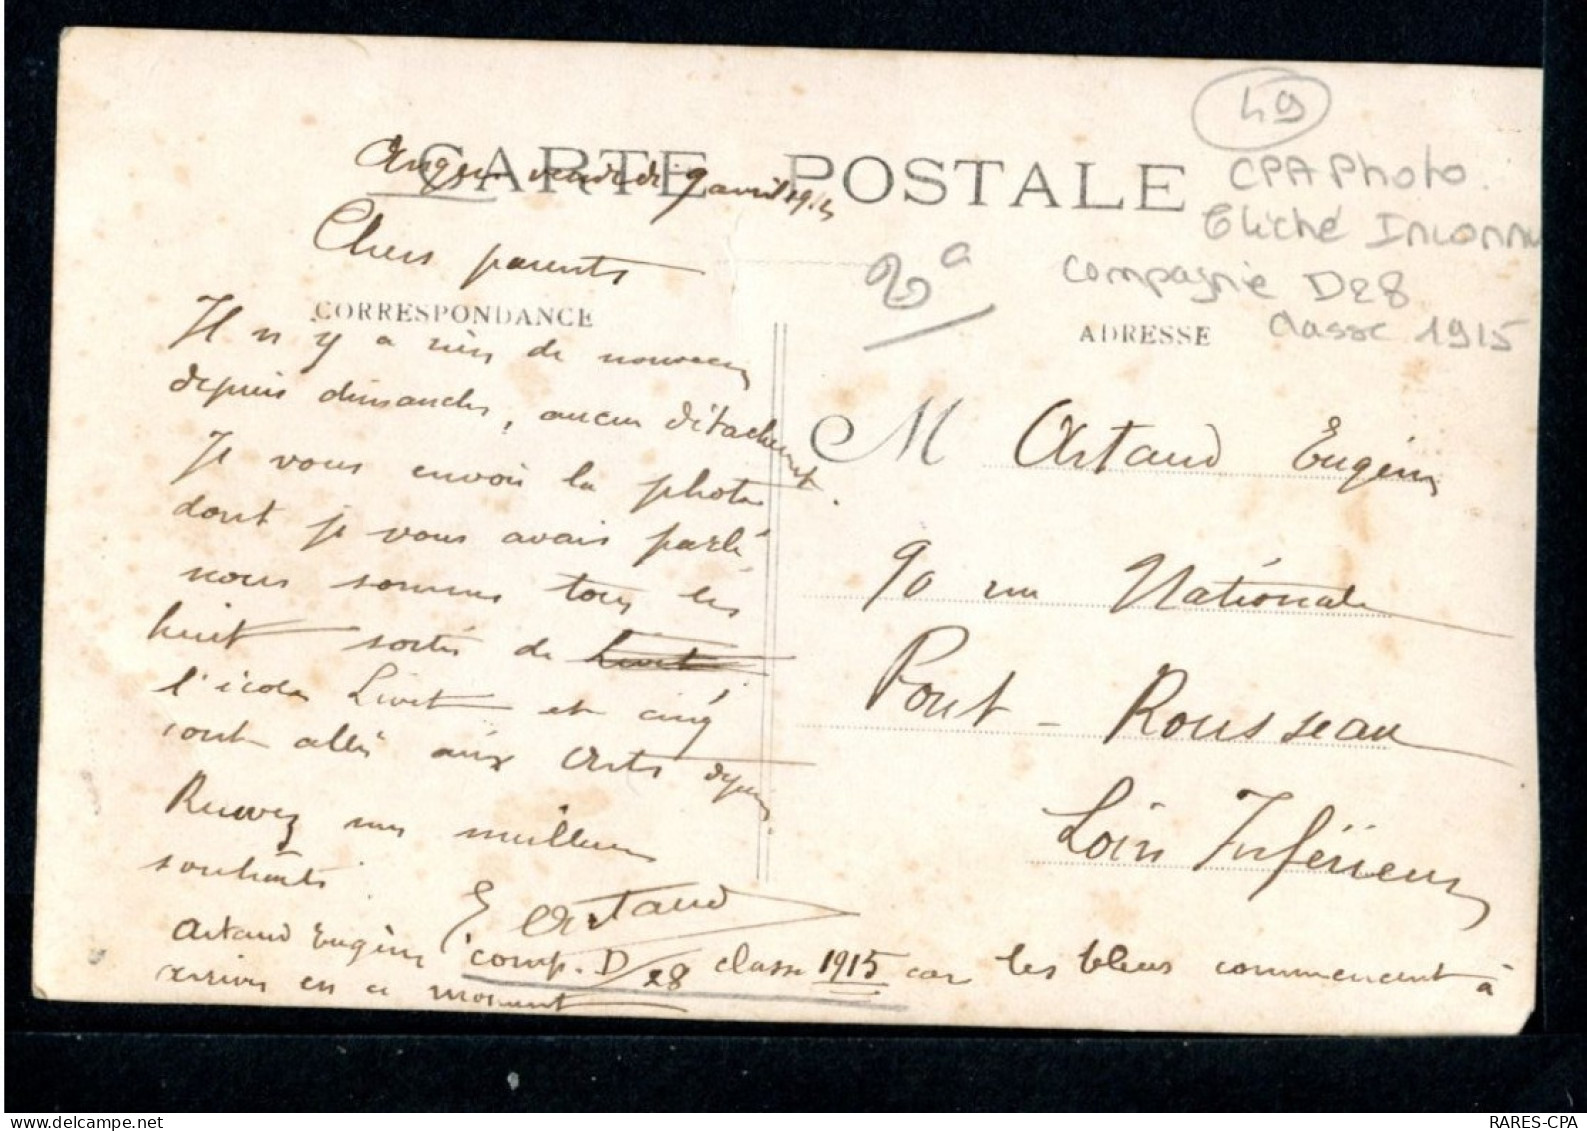 49
CARTE POSTALE
CPA Photo
Cliché Inconnu
Compagnie D28
classe 1915
2a
Angers vendredi 9 avril 1915
Chers parents
CORRESPONDANCE
Il n'y a rien de nouveau
depuis dimanche, aucun détachement.
Je vous envoie la photo
dont je vous avais parlé,
nous sommes tous les
huit sortis de
l'école Livet et cinq
sont allés aux Arts
Recevez mes meilleurs
souhaits
E. Artaud
Artaud Eugène comp. D/28 classe 1915 car les bleus commencent à
arriver en ce moment
ADRESSE
M Artaud Eugène
90 rue Nationale
Pont-Rousseau
Loire Inférieure
www.delcampe.net
RARES-CPA